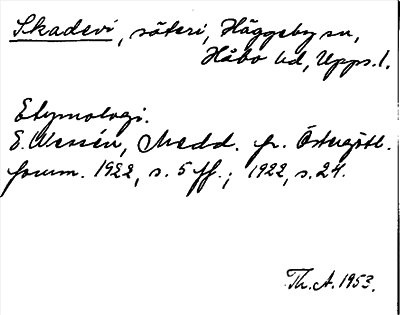 Skadevi, säteri, Häggeby sn,
Håbo hd, Upps. l.
Etymologi.
E. Wessén, Medd. fr. Östergötl.
fornm. 1922, s. 5 ff.; 1922, s. 24.
Th. A. 1953.